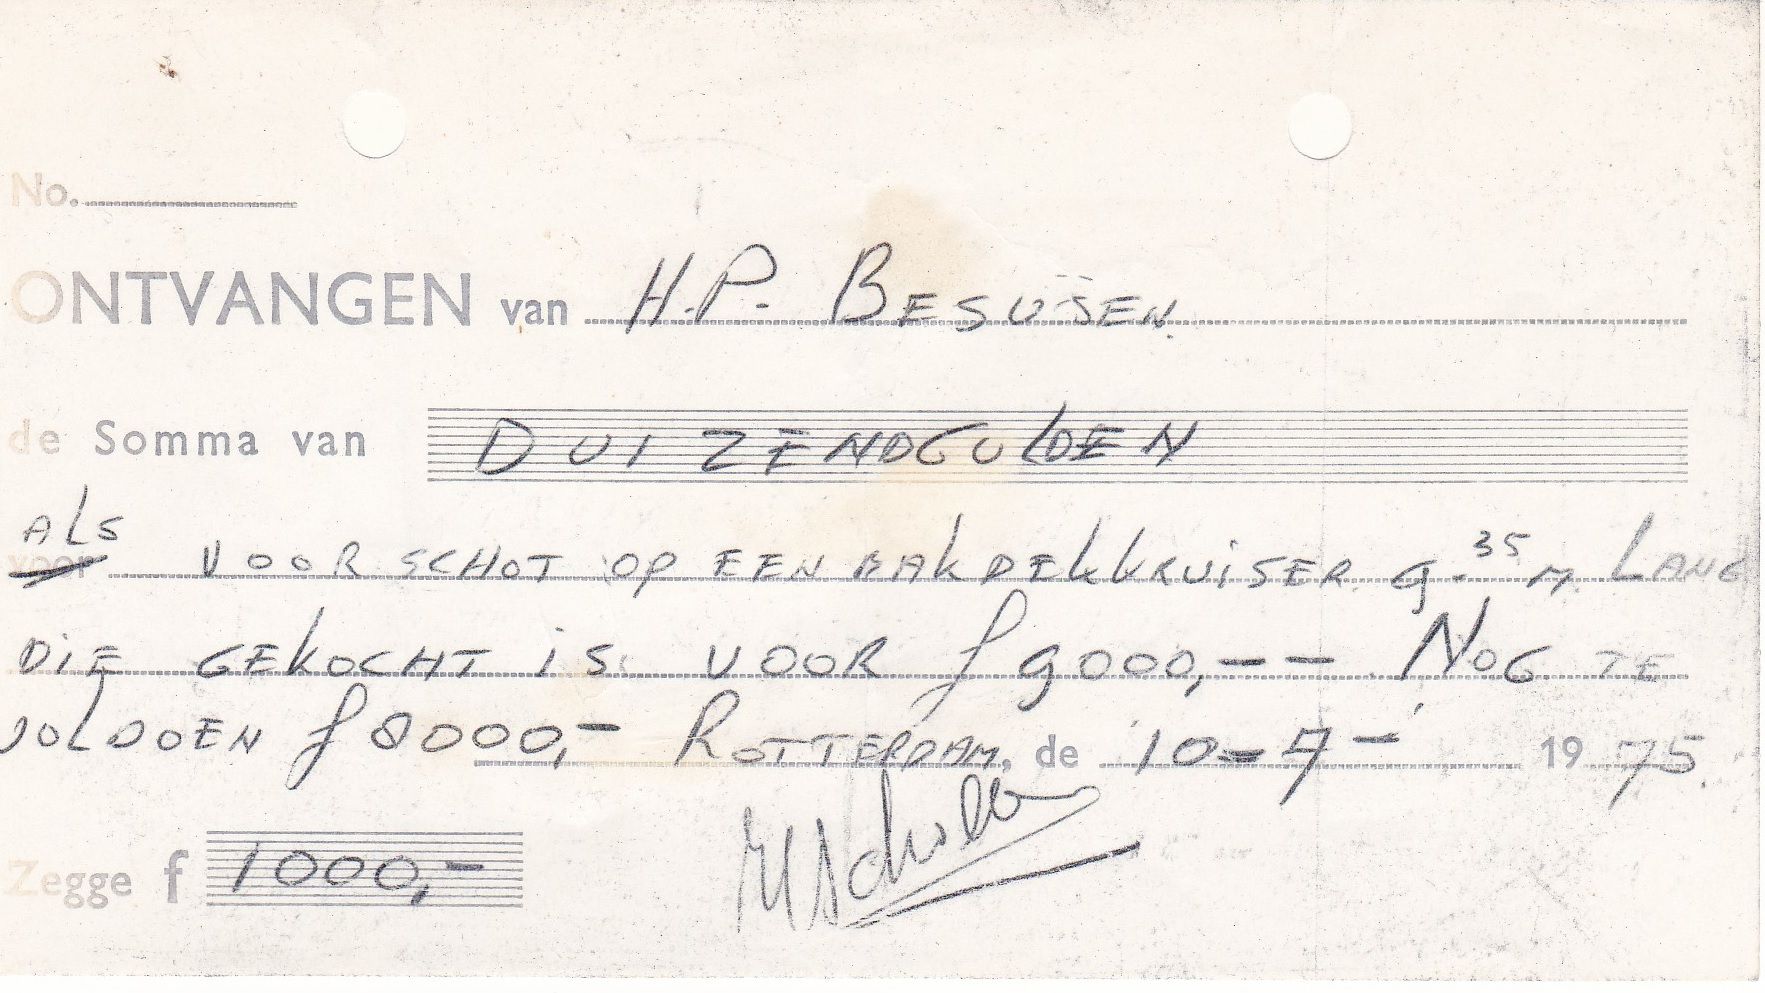 No.
ONTVANGEN van H.P. BESUŸEN.
de Somma van DUIZENDGULDEN
ALS
voor VOORSCHOT OP EEN BAKDEKKRUISER 9.35 M. LANG
DIE GEKOCHT IS VOOR f 9000,-- NOG TE
VOLDOEN f 8000,- ROTTERDAM, de 10-7- 1975.
Zegge f 1000,-